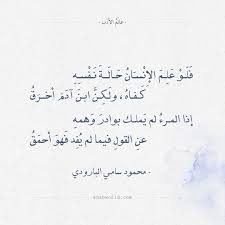 عالم الأدب
فَلَوْ عَلِمَ الإِنْسَانُ حَالَةَ نَفْسِهِ
كَفَاهُ ، ولَكِنَّ ابنَ آدَمَ أَخرَقُ
إذا المرءُ لم يَملك بوادرَ وَهمِهِ
عنِ القولِ فيما لم يُفِد فَهوَ أحمَقُ
- محمود سامي البارودي -